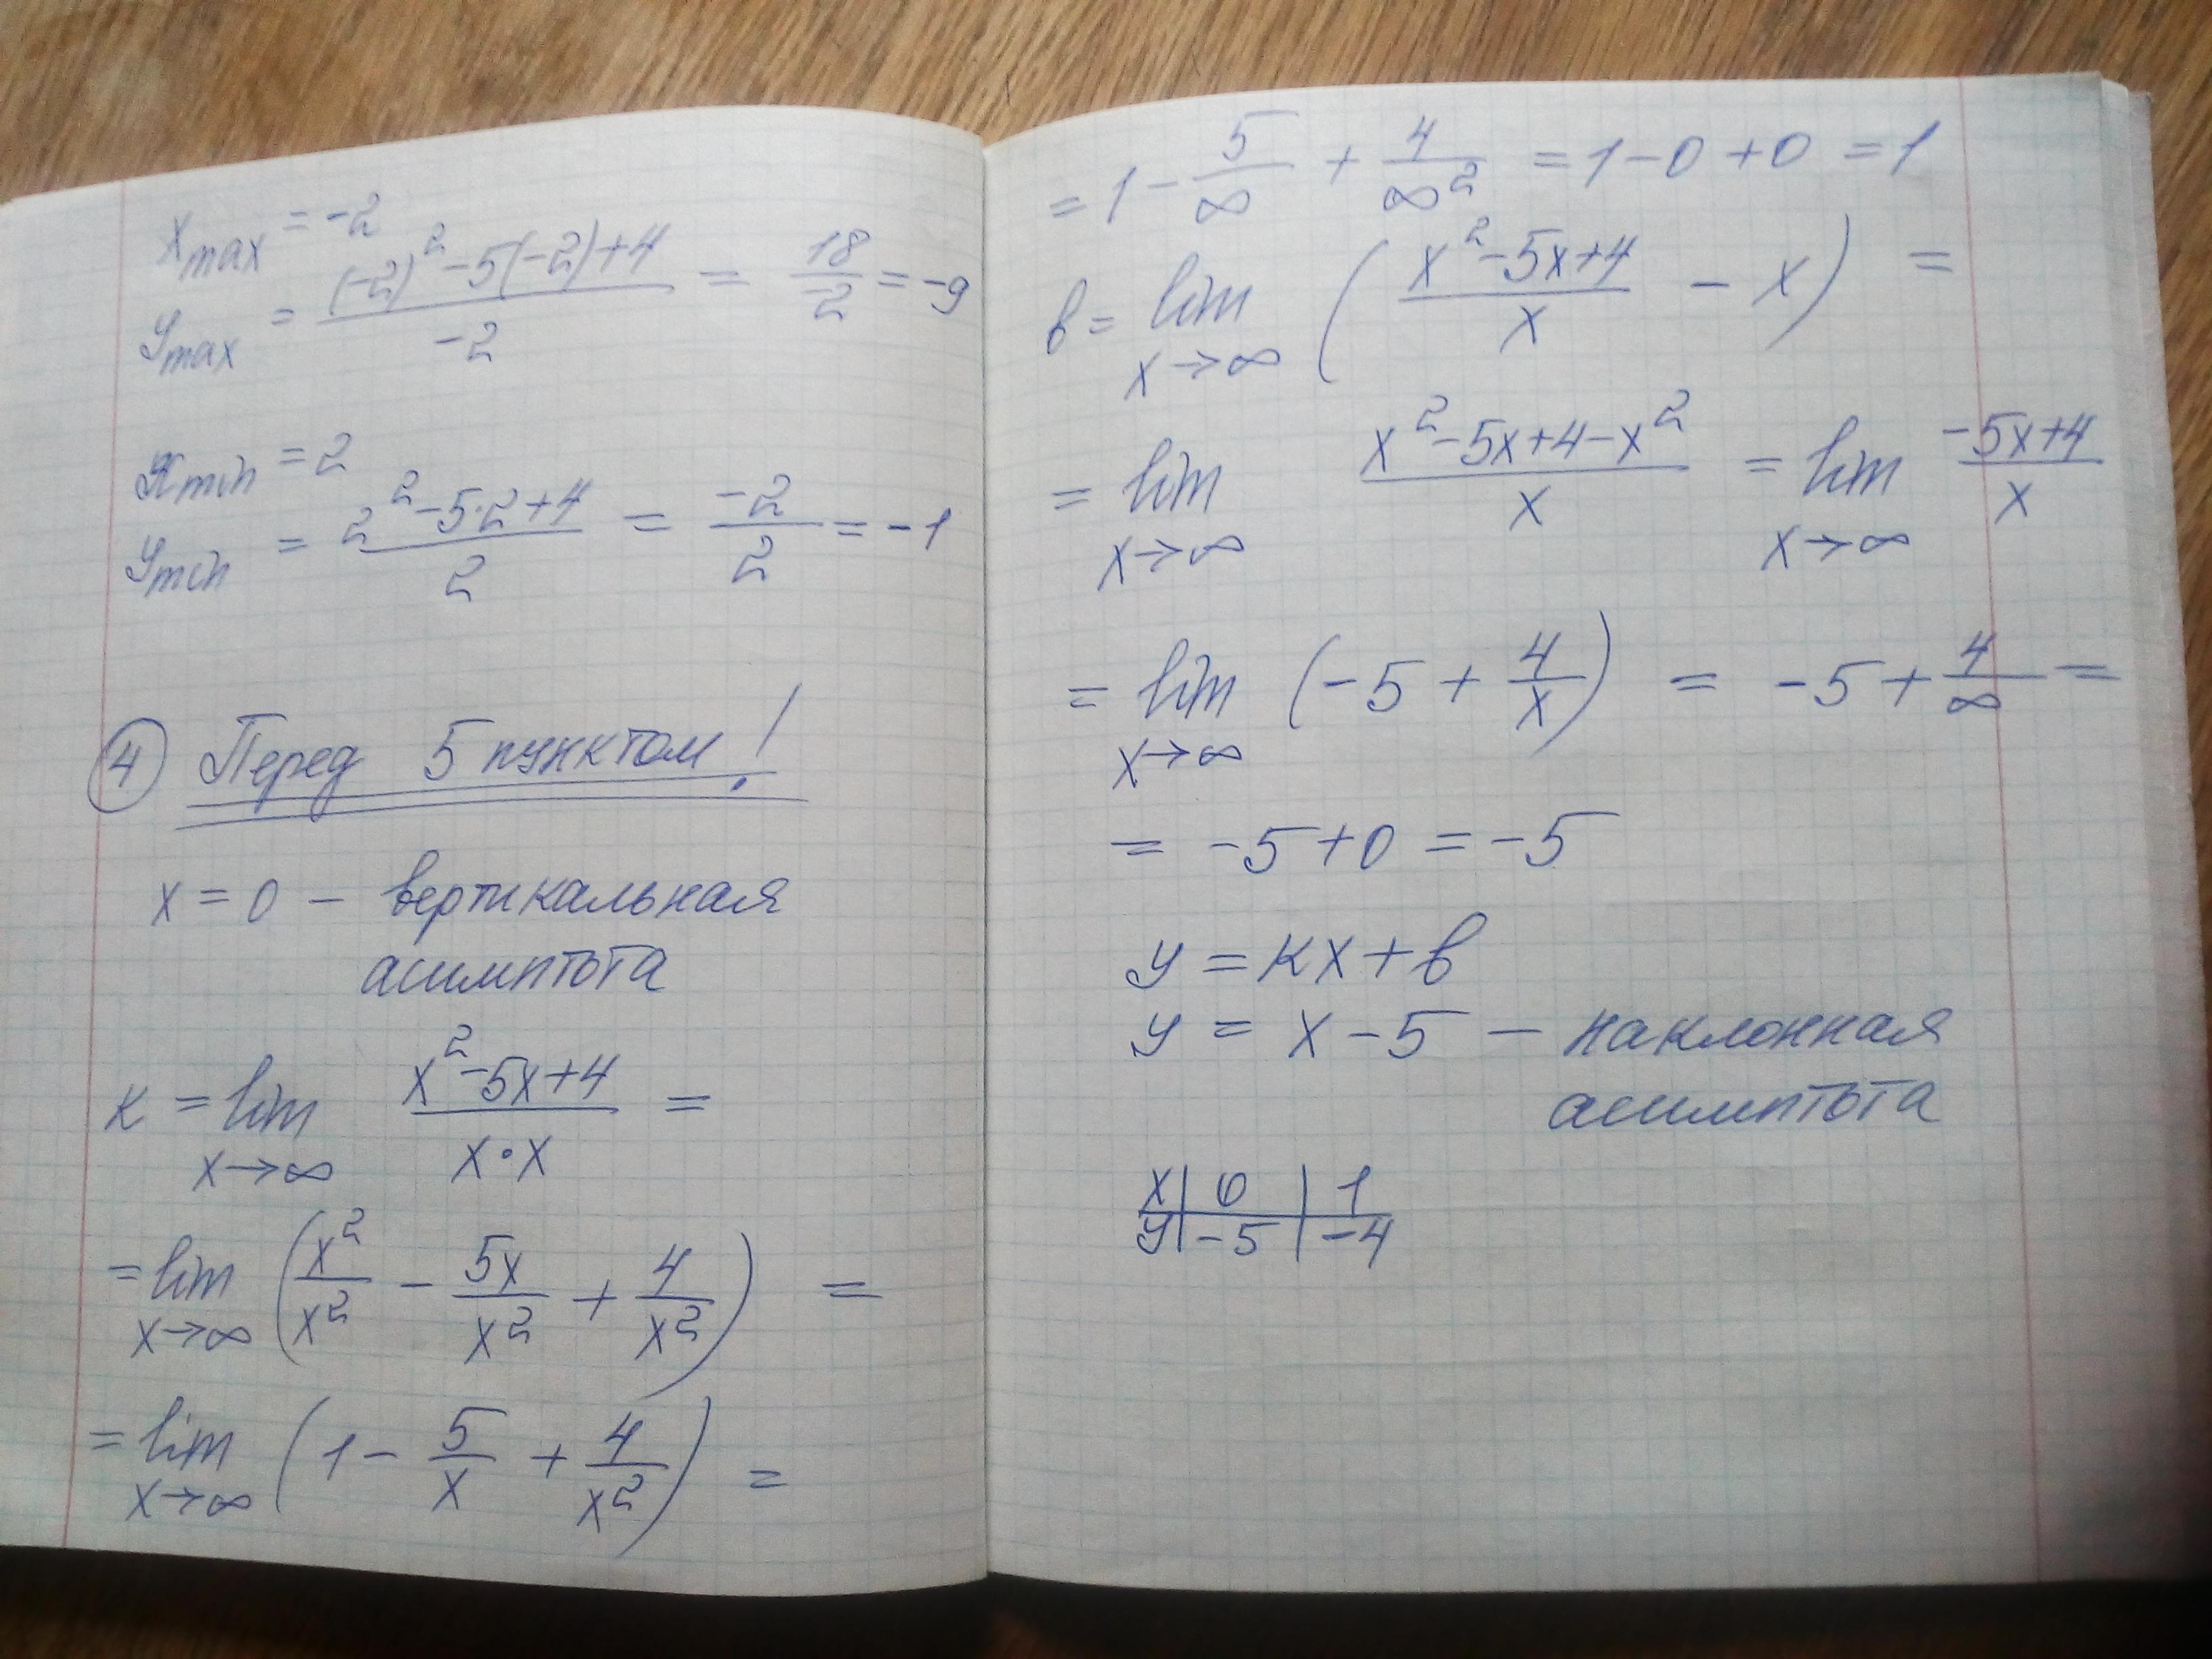 x max = -2
y max = ((-2)² - 5(-2) + 4) / -2 = 18 / -2 = -9
x min = 2
y min = (2² - 5·2 + 4) / 2 = -2 / 2 = -1
④ Перед 5 пунктом!
x = 0 – вертикальная
асимптота
к = lim x→∞ (x² - 5x + 4) / (x·x) =
= lim x→∞ (x²/x² - 5x/x² + 4/x²) =
= lim x→∞ (1 - 5/x + 4/x²) =
= 1 - 5/∞ + 4/∞² = 1 - 0 + 0 = 1
в = lim x→∞ ((x² - 5x + 4)/x - x) =
= lim x→∞ (x² - 5x + 4 - x²)/x = lim x→∞ (-5x + 4)/x
= lim x→∞ (-5 + 4/x) = -5 + 4/∞ =
= -5 + 0 = -5
y = кx + в
y = x - 5 – наклонная
асимптота
x | 0 | 1
y | -5 | -4